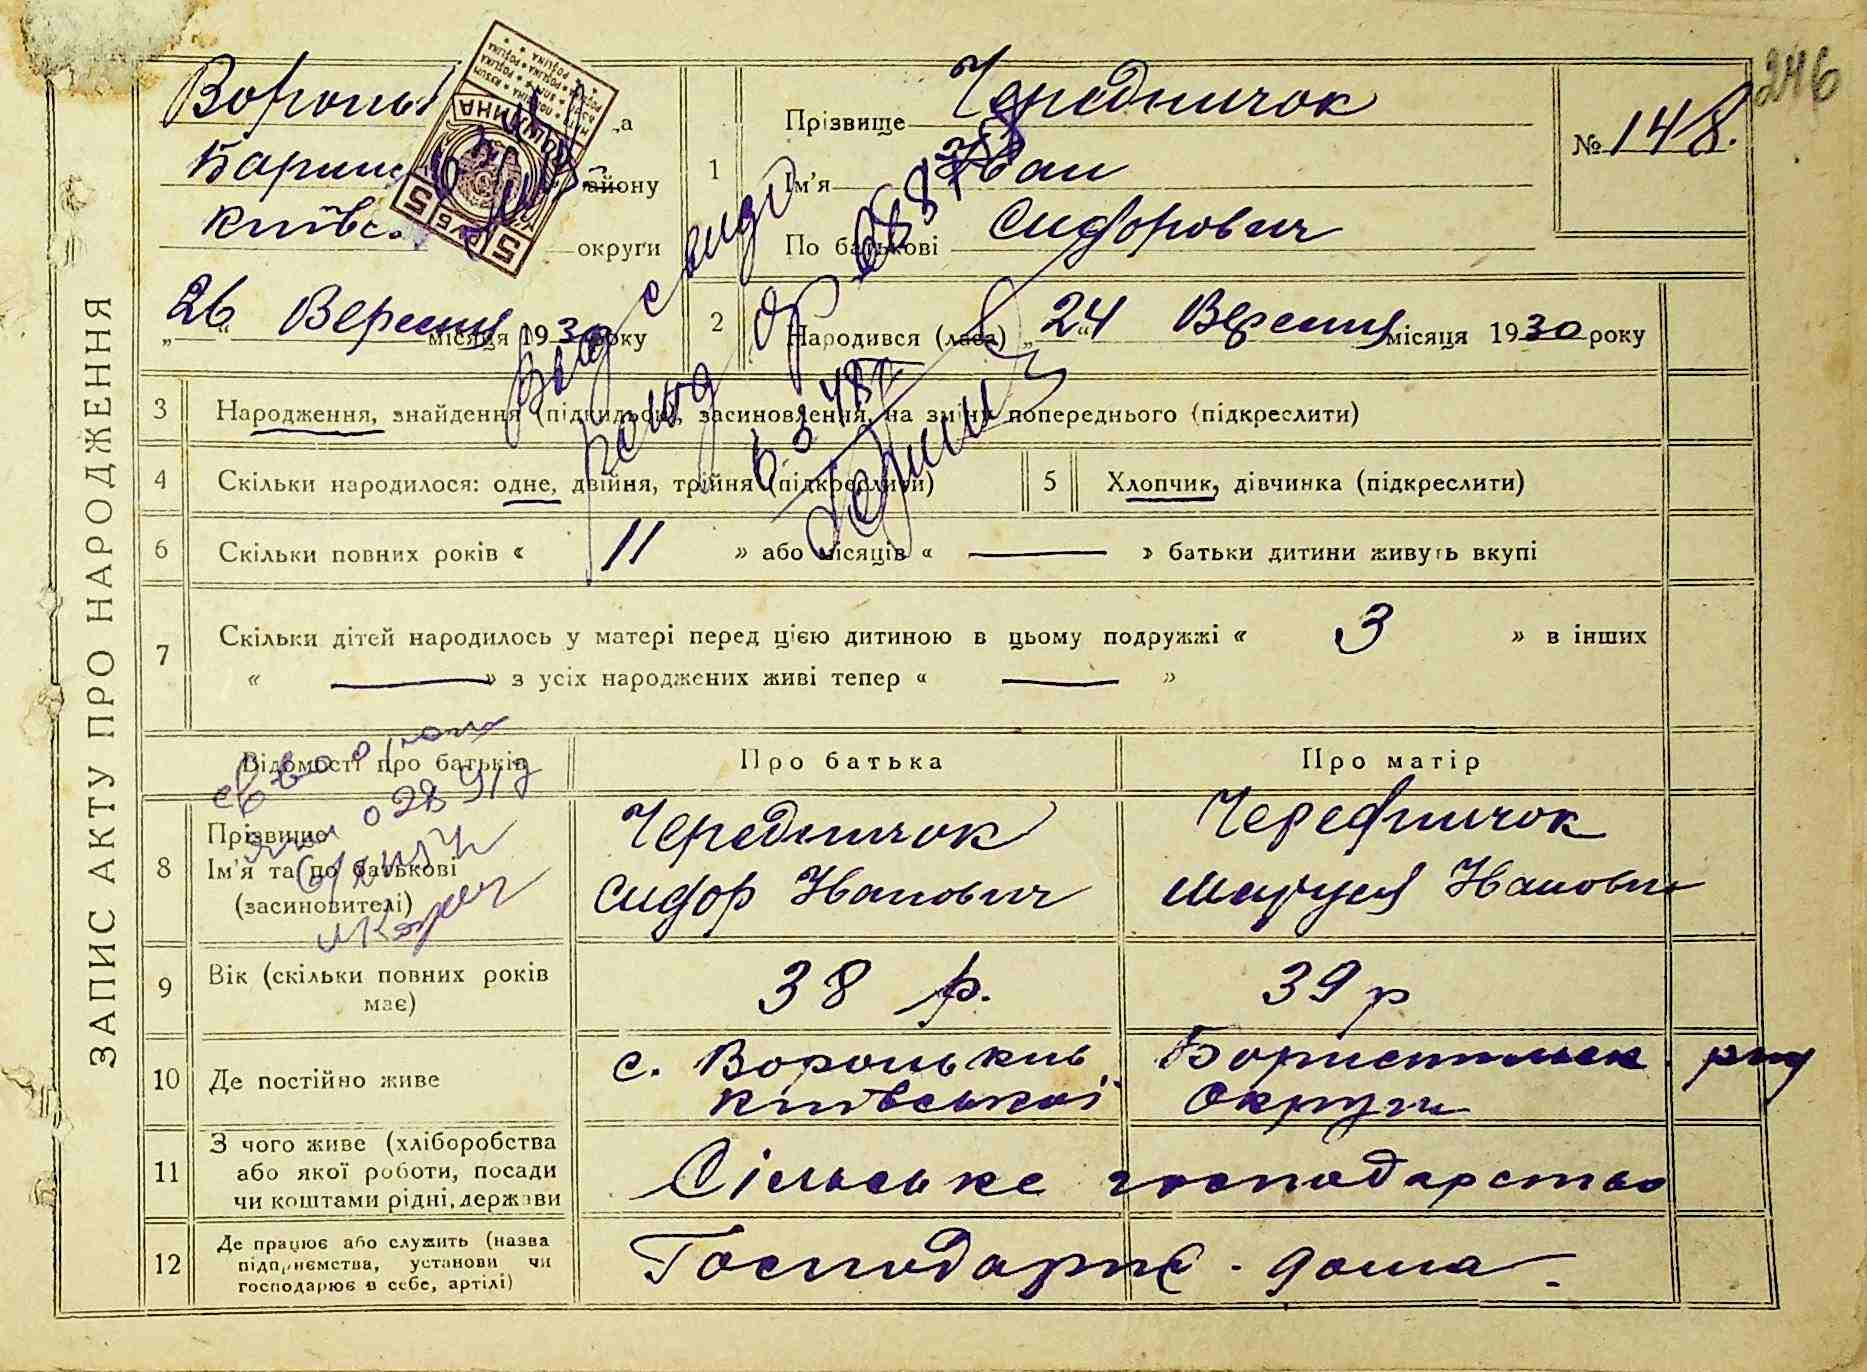 246
ЗАПИС АКТУ ПРО НАРОДЖЕННЯ
району
Київс
округи
„26“ Вересня місяця 1930 року
1
Прізвище Чередничок
Ім'я Іван
По батькові Сидорович
№ 148.
2 Народився (лася) „24“ Вересня місяця 1930 року
3 Народження, знайдення (підкидьок), засиновлення, на зміну попереднього (підкреслити)
4 Скільки народилося: одне, двійня, трійня (підкреслити)
5 Хлопчик, дівчинка (підкреслити)
6 Скільки повних років « 11 » або місяців « — » батьки дитини живуть вкупі
7 Скільки дітей народилось у матері перед цією дитиною в цьому подружжі « 3 » в інших
« — » з усіх народжених живі тепер « — »
Відомості про батьків
Про батька
Про матір
8 Прізвище
Ім'я та по батькові
(засиновителі)
Чередничок
Сидор Іванович
Чередничок
Маруся Івановн
9 Вік (скільки повних років
має)
38 р.
39 р
10 Де постійно живе
с. Вороньків Бориспільськ. рну
Київської Округи
11 З чого живе (хліборобства
або якої роботи, посади
чи коштами рідні, держави
Сільське господарство
12 Де працює або служить (назва
підприємства, установи чи
господарює в себе, артілі)
Господарює - дома.
5 РУБ 5